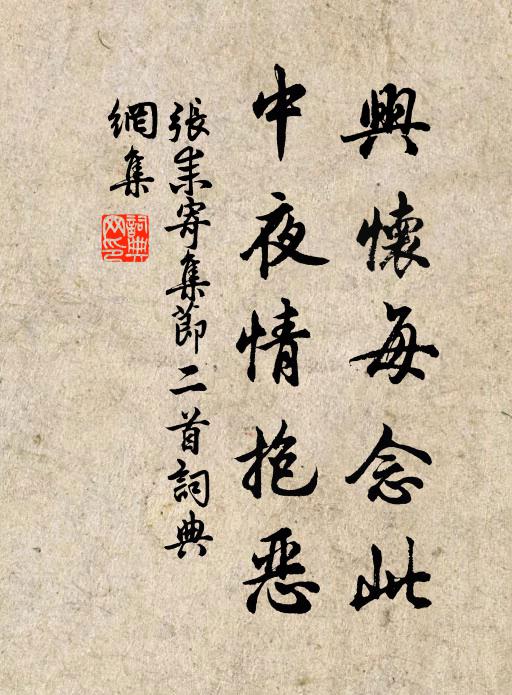 興懷每念此
中夜情抱惡
張耒寄集節二首詞典
網集
詞典網印